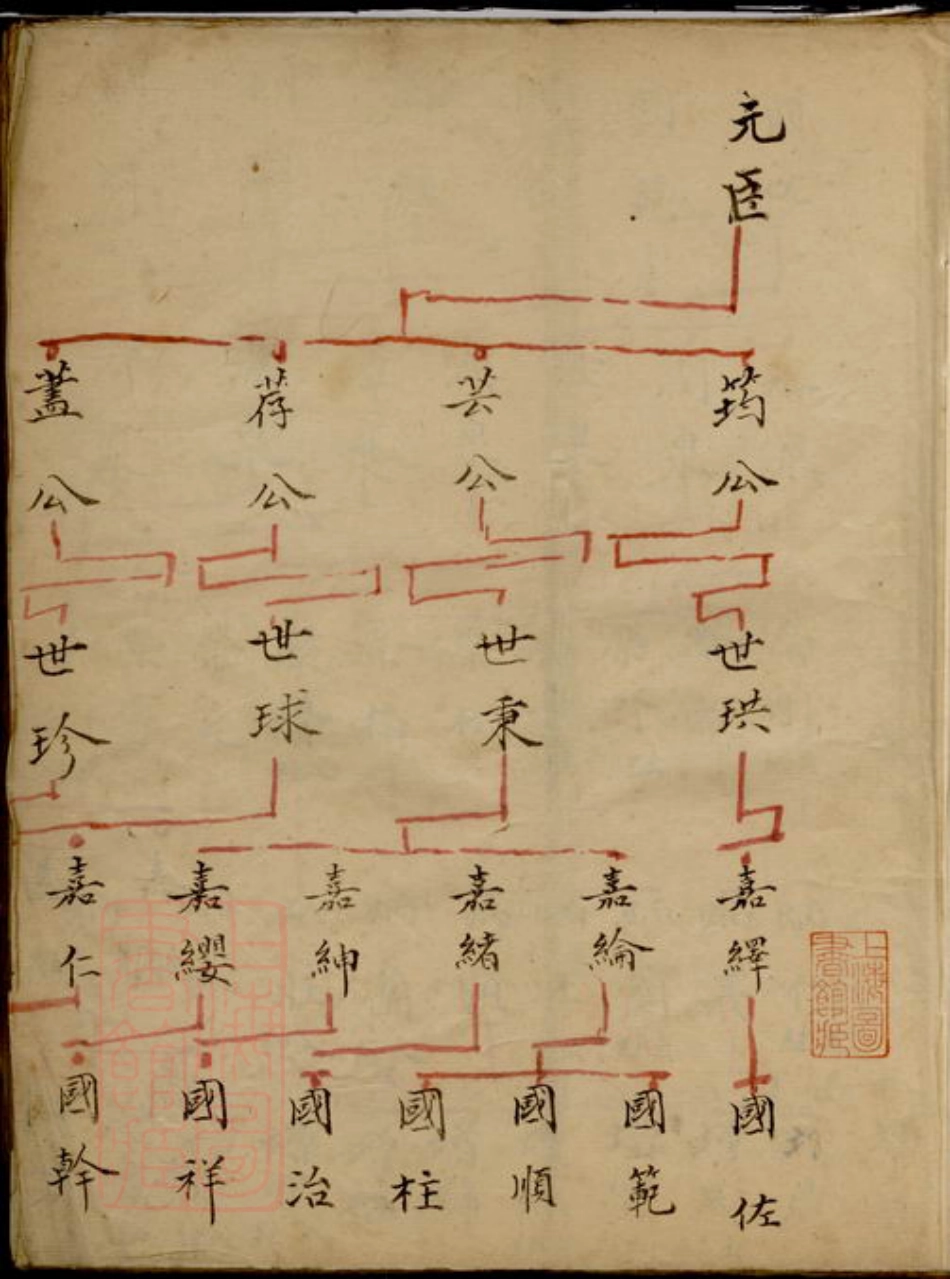 元臣
筠公
芸公
荐公
藎公
世珙
世秉
世球
世珍
嘉繹
嘉綸
嘉緒
嘉紳
嘉纓
嘉仁
國佐
國範
國順
國柱
國治
國祥
國幹
上海圖書館藏
上海圖書館藏